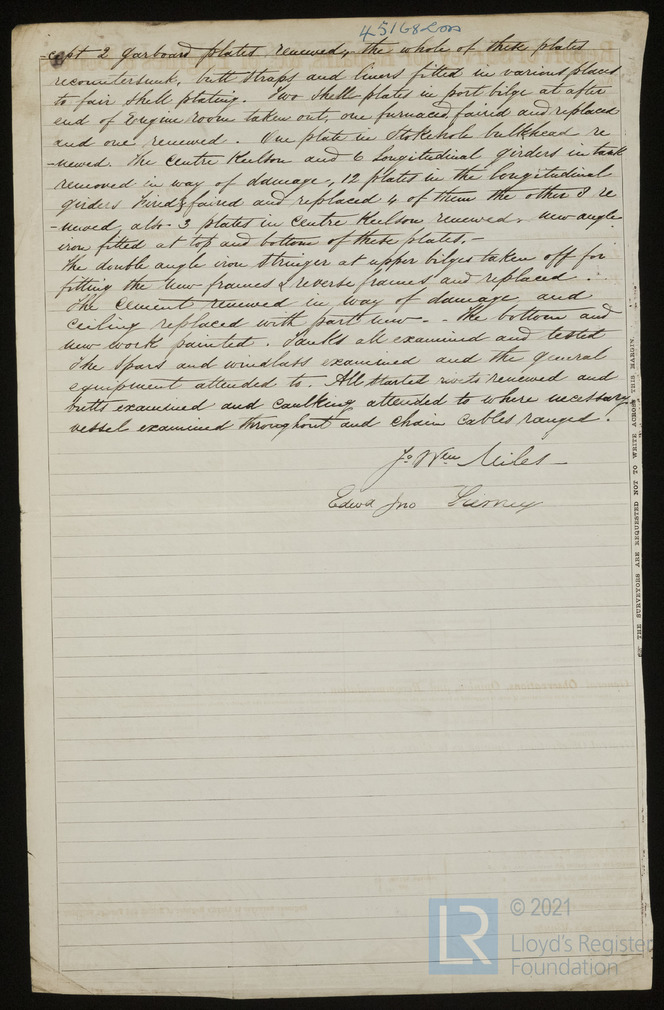 45168 Lon
-cept 2 garboard plates renewed, the whole of these plates
recountersunk, butt straps and liners fitted in various places
to fair shell plating. Two shell plates in port bilge at after
end of Engine room taken out, one furnaced, faired and replaced
and one renewed. One plate in Stokehole bulkhead re
-newed. The centre Keelson and 6 Longitudinal girders in tank
removed in way of damage, 12 plates in the longitudinal
girders fired & faired and replaced 4 of them the other 8 re
-newed, also 3 plates in centre Keelson renewed, new angle
iron fitted at top and bottom of these plates.-
The double angle iron Stringer at upper bilges taken off for
fitting the new frames & reverse frames and replaced.
The cement renewed in way of damage and
ceiling replaced with part new. - The bottom and
new work painted. Tanks all examined and tested
The Spars and windlass examined and the general
equipment attended to. All started rivets renewed and
butts examined and caulking attended to where necessary
vessel examined throughout and chain cables ranged.
Jo Wm Miles
Edwd Jno
THE SURVEYORS ARE REQUESTED NOT TO WRITE ACROSS THIS MARGIN.
LR
© 2021
Lloyd's Register
Foundation